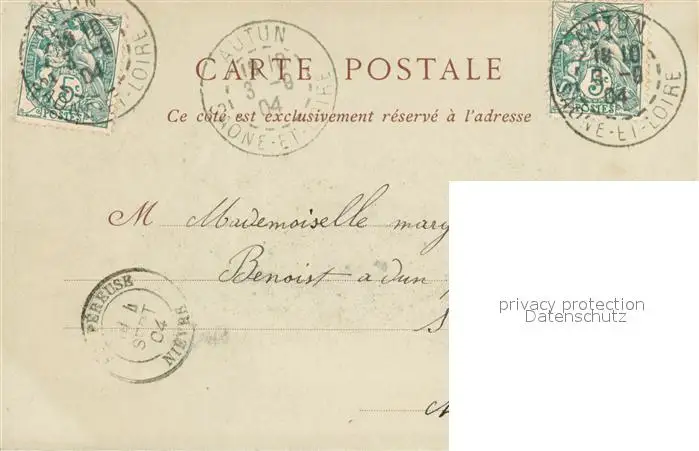 AUTUN
04
SAONE-ET-LOIRE
5c
POSTES
AUTUN
3 -9
04
SAONE-ET-LOIRE
AUTUN
18 10
3 -9
04
SAONE-ET-LOIRE
5c
POSTES
CARTE POSTALE
Ce côté est exclusivement réservé à l'adresse
M Mademoiselle
Benoist a dun
PÉREUSE
4
SEPT
04
NIEVRE
privacy protection
Datenschutz